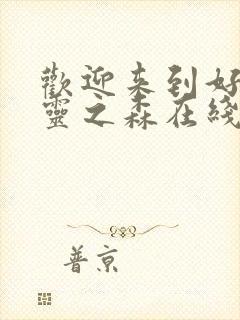 歡迎来到好
靈之森在綫
普京